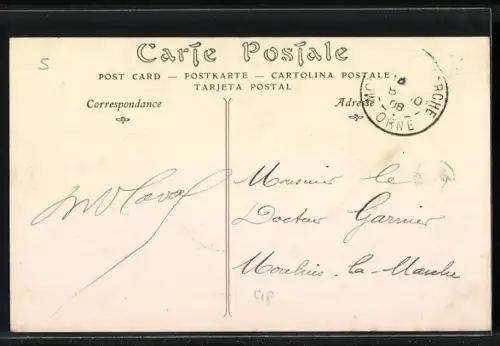 5
Carte Postale
POST CARD — POSTKARTE — CARTOLINA POSTALE
TARJETA POSTAL
Correspondance
Adresse
ORNE
Monsieur le
Docteur Garnier
Moulins-la-Marche